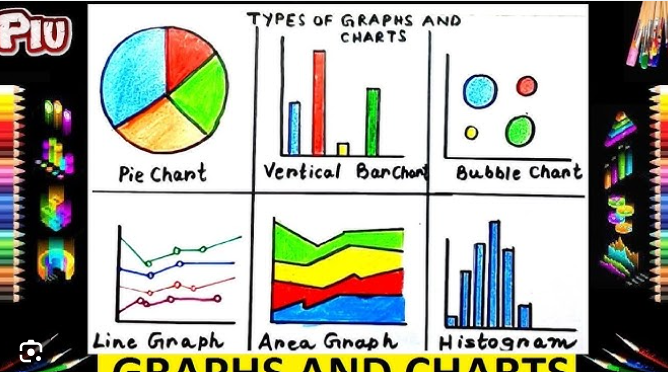 PIU
TYPES OF GRAPHS AND
CHARTS
Pie Chart
Vertical Bar Chart
Bubble Chart
Line Graph
Area Graph
Histogram
GRAPHS AND CHARTS